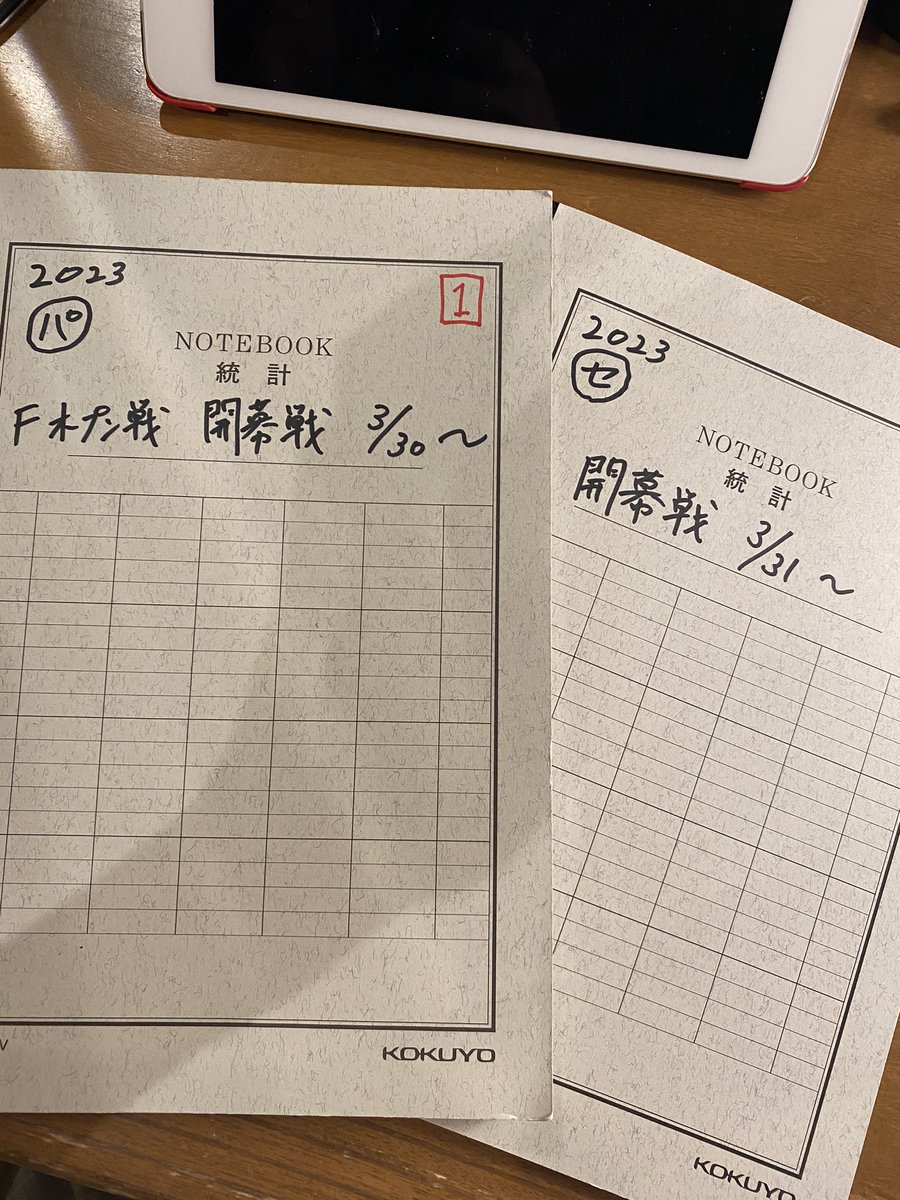 2023
1
パ
NOTEBOOK
統計
Fオプン戦 開幕戦 3/30〜
KOKUYO
2023
セ
NOTEBOOK
統計
開幕戦 3/31〜
KOKUYO